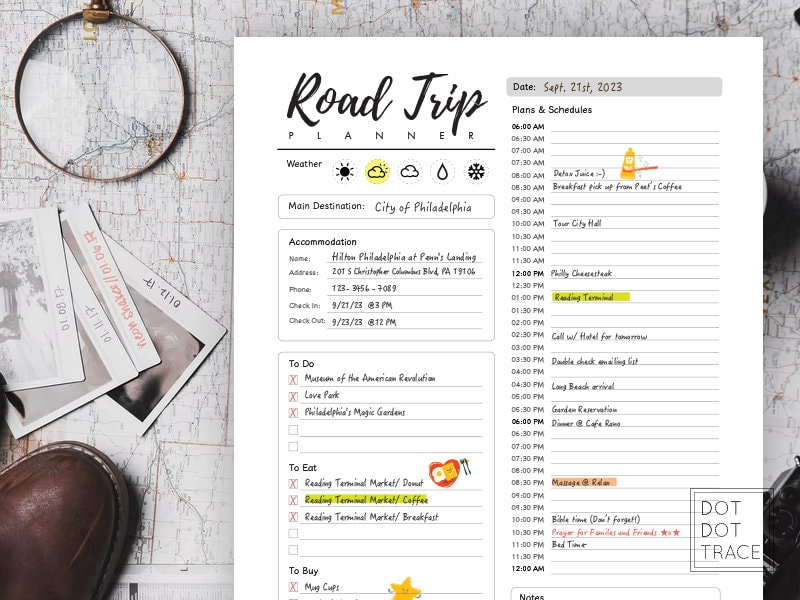 Road Trip
PLANNER
Weather
Main Destination: City of Philadelphia
Accommodation
Name: Hilton Philadelphia at Penn's Landing
Address: 201 S Christopher Columbus Blvd, PA 19106
Phone: 123- 3456 - 7089
Check In: 9/21/23 @3 PM
Check Out: 9/23/23 @12 PM
To Do
X Museum of the American Revolution
X Love Park
X Philadelphia's Magic Gardens
To Eat
X Reading Terminal Market/ Donut
X Reading Terminal Market/ Coffee
X Reading Terminal Market/ Breakfast
To Buy
X Mug Cups
Date: Sept. 21st, 2023
Plans & Schedules
06:00 AM
06:30 AM
07:00 AM
07:30 AM
08:00 AM Detox Juice :-)
08:30 AM Breakfast pick up from Peet's Coffee
09:00 AM
09:30 AM
10:00 AM Tour City Hall
10:30 AM
11:00 AM
11:30 AM
12:00 PM Philly Cheesesteak
12:30 PM
01:00 PM Reading Terminal
01:30 PM
02:00 PM
02:30 PM Call w/ Hotel for tomorrow
03:00 PM
03:30 PM Double check emailing list
04:00 PM
04:30 PM Long Beach arrival
05:00 PM
05:30 PM Garden Reservation
06:00 PM Dinner @ Cafe Rano
06:30 PM
07:00 PM
07:30 PM
08:00 PM
08:30 PM Massage @
09:00 PM
09:30 PM
10:00 PM Bible time (Don't forget!)
10:30 PM Prayer for Familes and Friends
11:00 PM Bed Time
11:30 PM
12:00 AM
Notes
DOT
DOT
TRACE